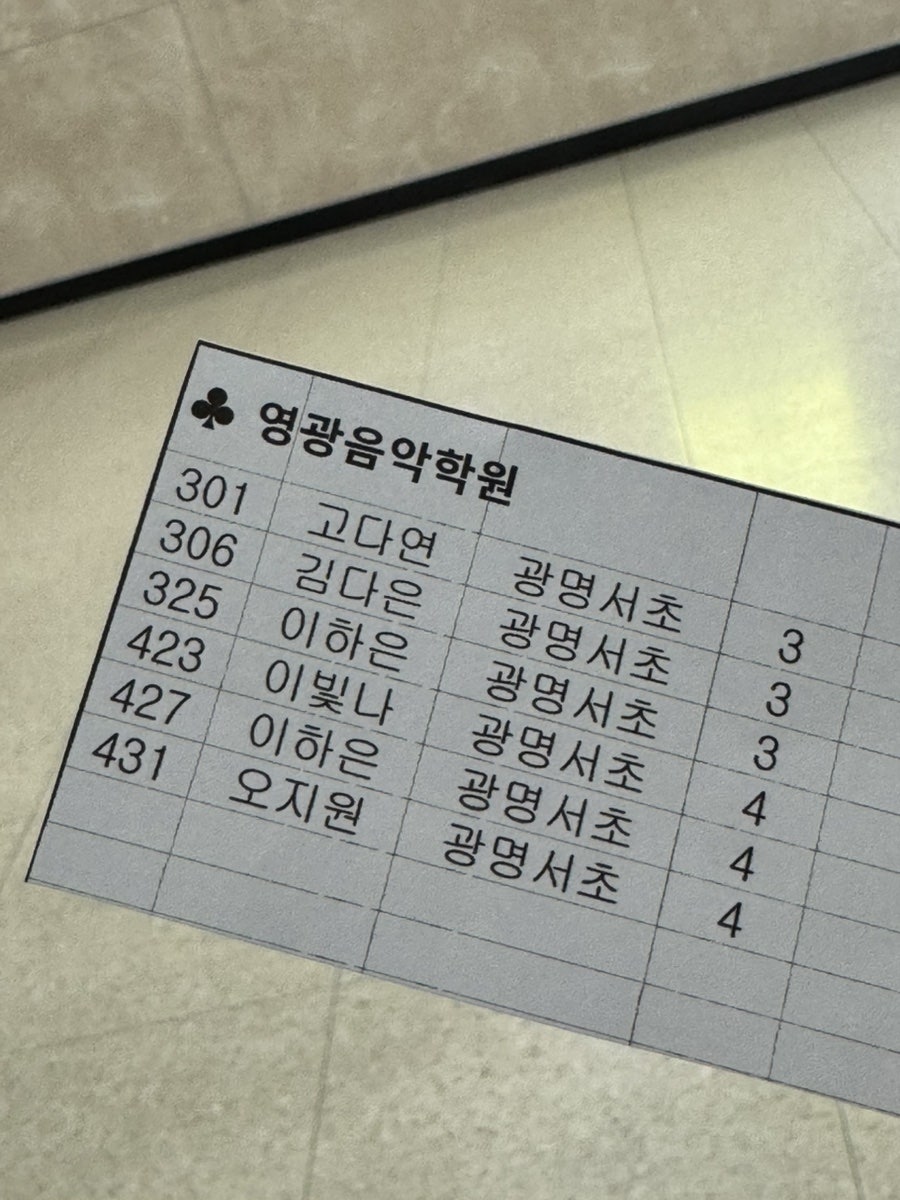 ♣ 영광음악학원
301 고다연 광명서초 3
306 김다은 광명서초 3
325 이하은 광명서초 3
423 이빛나 광명서초 4
427 이하은 광명서초 4
431 오지원 광명서초 4